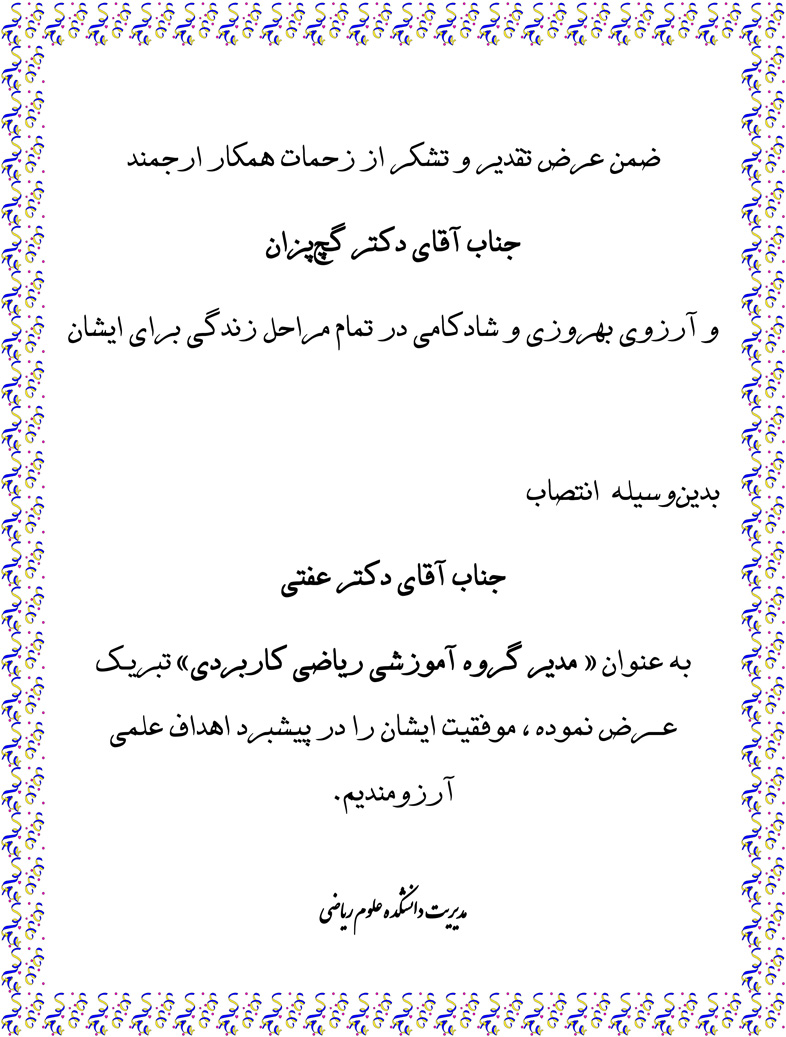 ضمن عرض تقدیر و تشکر از زحمات همکار ارجمند
جناب آقای دکتر گچ‌پزان
و آرزوی بهروزی و شادکامی در تمام مراحل زندگی برای ایشان
بدین‌وسیله انتصاب
جناب آقای دکتر عفتی
به عنوان « مدیر گروه آموزشی ریاضی کاربردی» تبریک
عــرض نموده ، موفقیت ایشان را در پیشبرد اهداف علمی
آرزومندیم.
مدیریت دانشکده علوم ریاضی